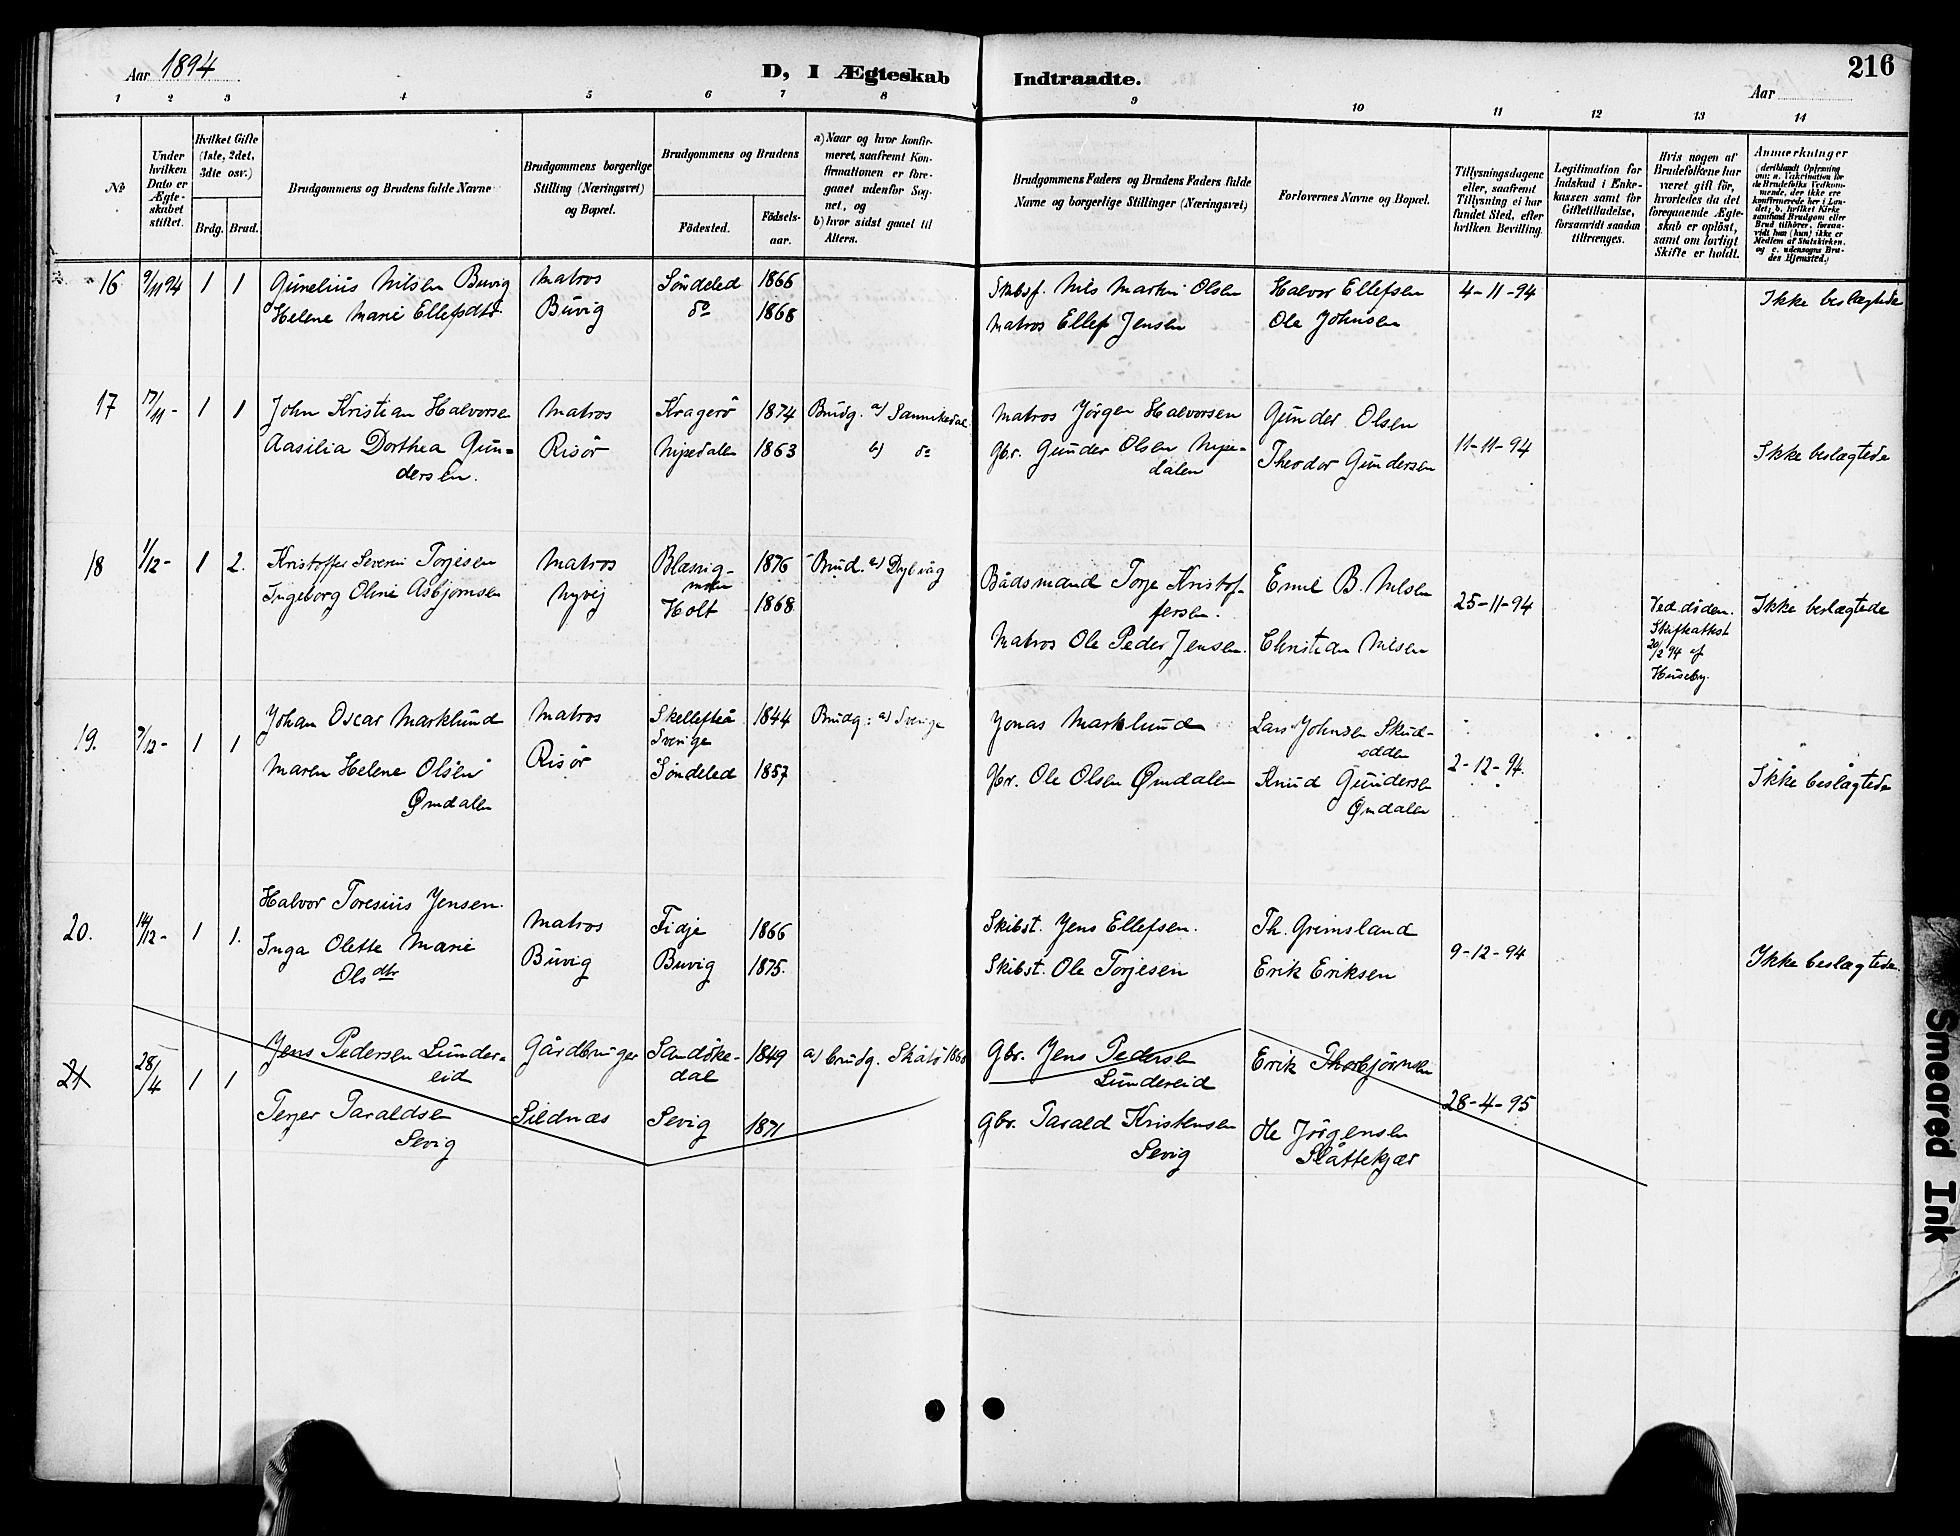 Aar 1894
D, I Ægteskab Indtraadte.
216
Aar
1 2 3 4 5 6 7 8 9 10 11 12 13 14
No
Under hvilken Dato er Ægteskabet stiftet.
Hvilket Gifte (1ste, 2det, 3dte osv.)
Brdg. Brud.
Brudgommens og Brudens fulde Navne
Brudgommens borgerlige Stilling (Næringsvei) og Bopæl.
Brudgommens og Brudens
Fødested.
Fødselsaar.
a) Naar og hvor konfirmeret, saafremt Konfirmationen er foregaaet udenfor Sognet, og
b) hvor sidst gaaet til Alters.
Brudgommens Faders og Brudens Faders fulde Navne og borgerlige Stillinger (Næringsvei)
Forlovernes Navne og Bopæl.
Tillysningsdagene eller, saafremt Tillysning ei har fundet Sted, efter hvilken Bevilling.
Legitimation for Indskud i Enkekassen samt for Giftetilladelse, forsaavidt saadan tiltrænges.
Hvis nogen af Brudefolkene har været gift før, hvorledes da det foregaaende Ægteskab er opløst, samt om lovligt Skifte er holdt.
Anmærkninger
(deriblandt Opførsng om: a. Vakcination for de Brudefolks Vedkommende, der ikke ere konfirmerede her i Landet; b. hvilket Kirkesamfund Brudgom eller Brud tilhører, forsaavidt han (hun) ikke er Medlem af Statskirken, og c. udensogns Brudes Hjemsted.)
16 9/11 94 1 1 Gunelius Nilsen Buvig Matros Søndeled 1866 Skibsf. Nils Martin Olsen Halvor Ellefsen 4-11-94 Ikke beslægtede
Helene Marie Ellefsdtr. Buvig do 1868 Matros Ellef Jensen Ole Johnsen
17 17/11- 1 1 John Kristian Halvorsen Matros Kragerö 1874 Brudg. a) Sannikedal Matros Jörgen Halvorsen Gunder Olsen
Aasilia Dorthea Gun= Risör Nipedalen 1863 b) do Gbr. Gunder Olsen Nipe- Theodor Gundersen 11-11-94 Ikke beslægtede
dersen. dalen
18 1/12- 1 2. Kristoffer Severin Torjesen Matros 1876 Brud. a) Dybvåg Bådsmand Torje Kristof- Emil B. Nilsen
Ingeborg Oline Asbjørnsen Nyvej Holt 1868 fersen. 25-11-94 Ved döden. Ikke beslægtede
Matros Ole Peder Jensen. Christian Nilsen Skifteattest
20/2 94 af
Huseby.
19. 9/12- 1 1 Johan Oscar Marklund Matros Skellefteå 1844 Brudg: a) Sverige Jonas Marklund Lars Johnsen Skud-
Sverige odden
Maren Helene Olsen Risör Søndeled 1857 Gbr. Ole Olsen Ømdalen Knud Gundersen 2-12-94. Ikke beslågtede
Ømdalen Ømdalen
20. 14/12- 1 1. Halvor Toresius Jensen. Matros Fidje 1866 Skibst. Jens Ellefsen. Th. Grimsland
Inga Olette Marie Buvig Buvig 1875. Skibst. Ole Torjesen Erik Eriksen 9-12-94 Ikke beslægtede.
Olsdtr
21 28/4 1 1 Jens Pedersen Lunder= Gårdbruger Sandöke- 1849 a) brudg. Skåtö Gbr. Jens Pedersen Erik Thorbjørnsen
eid dal Lundereid
Terjer Taraldsen Sildnæs Sevig 1871 Gbr. Tarald Kristensen Ole Jörgensen 28-4-95
Sevig Sevig Slåttekjær
Smeared Ink